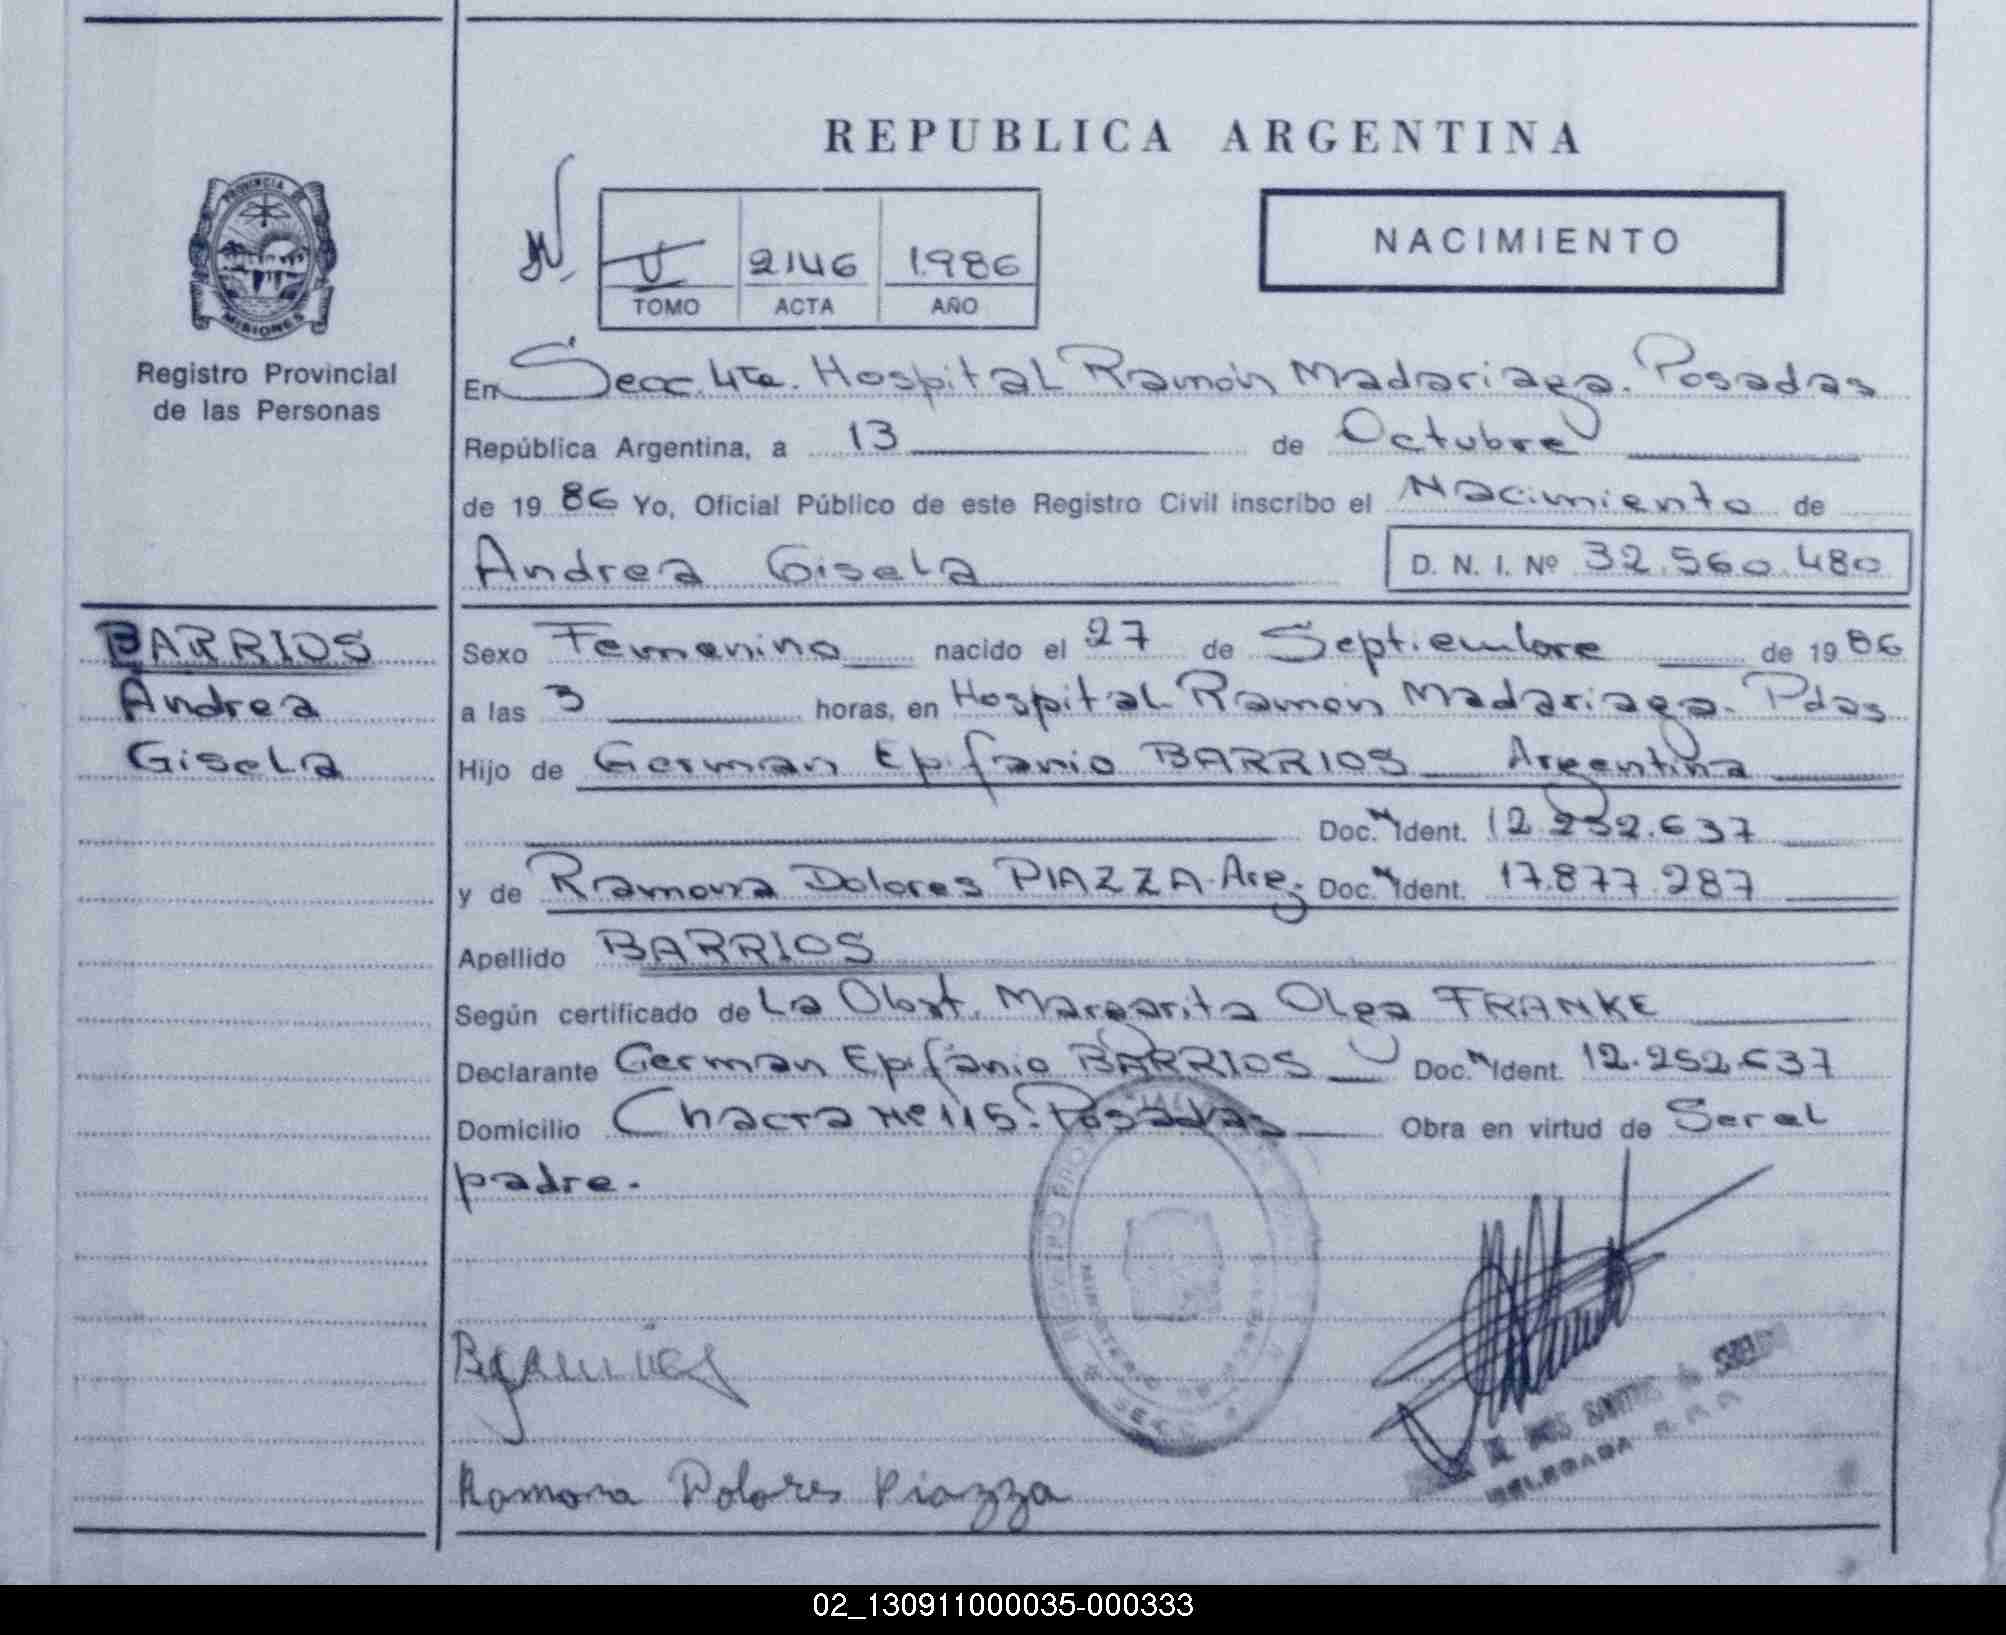 REPUBLICA ARGENTINA
PROVINCIA DE
MISIONES
Registro Provincial
de las Personas
2146 1986
TOMO ACTA AÑO
NACIMIENTO
En Secc. 4ta. Hospital Ramón Madariaga. Posadas
República Argentina, a 13 de Octubre
de 19 86 Yo, Oficial Público de este Registro Civil inscribo el Nacimiento de
Andrea Gisela D. N. I. Nº 32.560.480
BARRIOS
Andrea
Gisela
Sexo Femenino nacido el 27 de Septiembre de 19 86
a las 3 horas, en Hospital Ramón Madariaga. Pdas
Hijo de German Epifanio BARRIOS Argentina
Doc. Ident. 12.252.637
y de Ramona Dolores PIAZZA-Arg. Doc. Ident. 17.877.287
Apellido BARRIOS
Según certificado de La Obst. Margarita Olga FRANKE
Declarante German Epifanio BARRIOS Doc. Ident. 12.252.637
Domicilio Chacra Nº 115. Posadas Obra en virtud de Ser el
padre.
MINISTERIO DE GOBIERNO
DOS SANTOS de
DELEGADA
Ramona Dolores Piazza
02_130911000035-000333